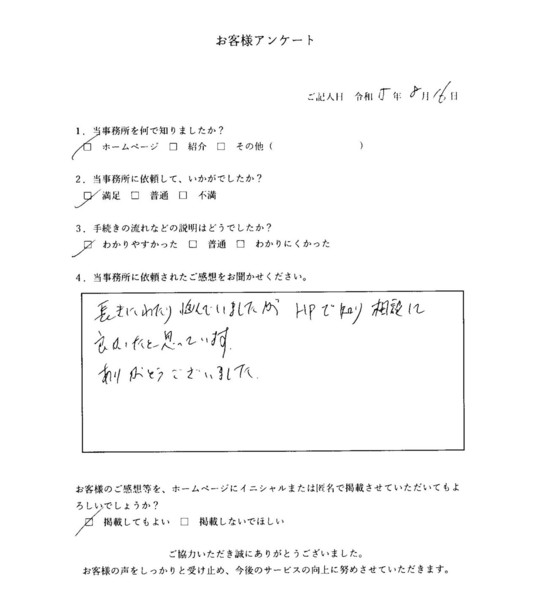 お客様アンケート
ご記入日 令和 5 年 8 月 16 日
1．当事務所を何で知りましたか？
☑ ホームページ □ 紹介 □ その他（ ）
2．当事務所に依頼して、いかがでしたか？
☑ 満足 □ 普通 □ 不満
3．手続きの流れなどの説明はどうでしたか？
☑ わかりやすかった □ 普通 □ わかりにくかった
4．当事務所に依頼されたご感想をお聞かせください。
長きにわたり悩んでいましたが HPで知り 相談して
良かったと思っています。
ありがとうございました。
お客様のご感想等を、ホームページにイニシャルまたは匿名で掲載させていただいてもよ
ろしいでしょうか？
☑ 掲載してもよい □ 掲載しないでほしい
ご協力いただき誠にありがとうございました。
お客様の声をしっかりと受け止め、今後のサービスの向上に努めさせていただきます。